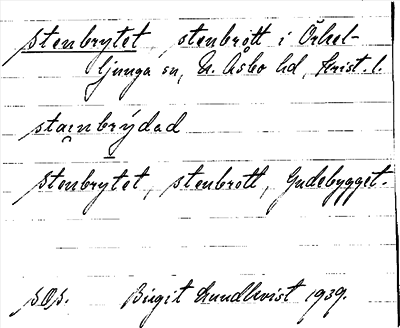 stenbrytet, stenbrott i Örkel-
ljunga sn, N. Åsbo hd, Krist. l.
stai̯nbrýdad
stenbrytet, stenbrott, Gudebygget.
SOS. Birgit Lundkvist 1939.